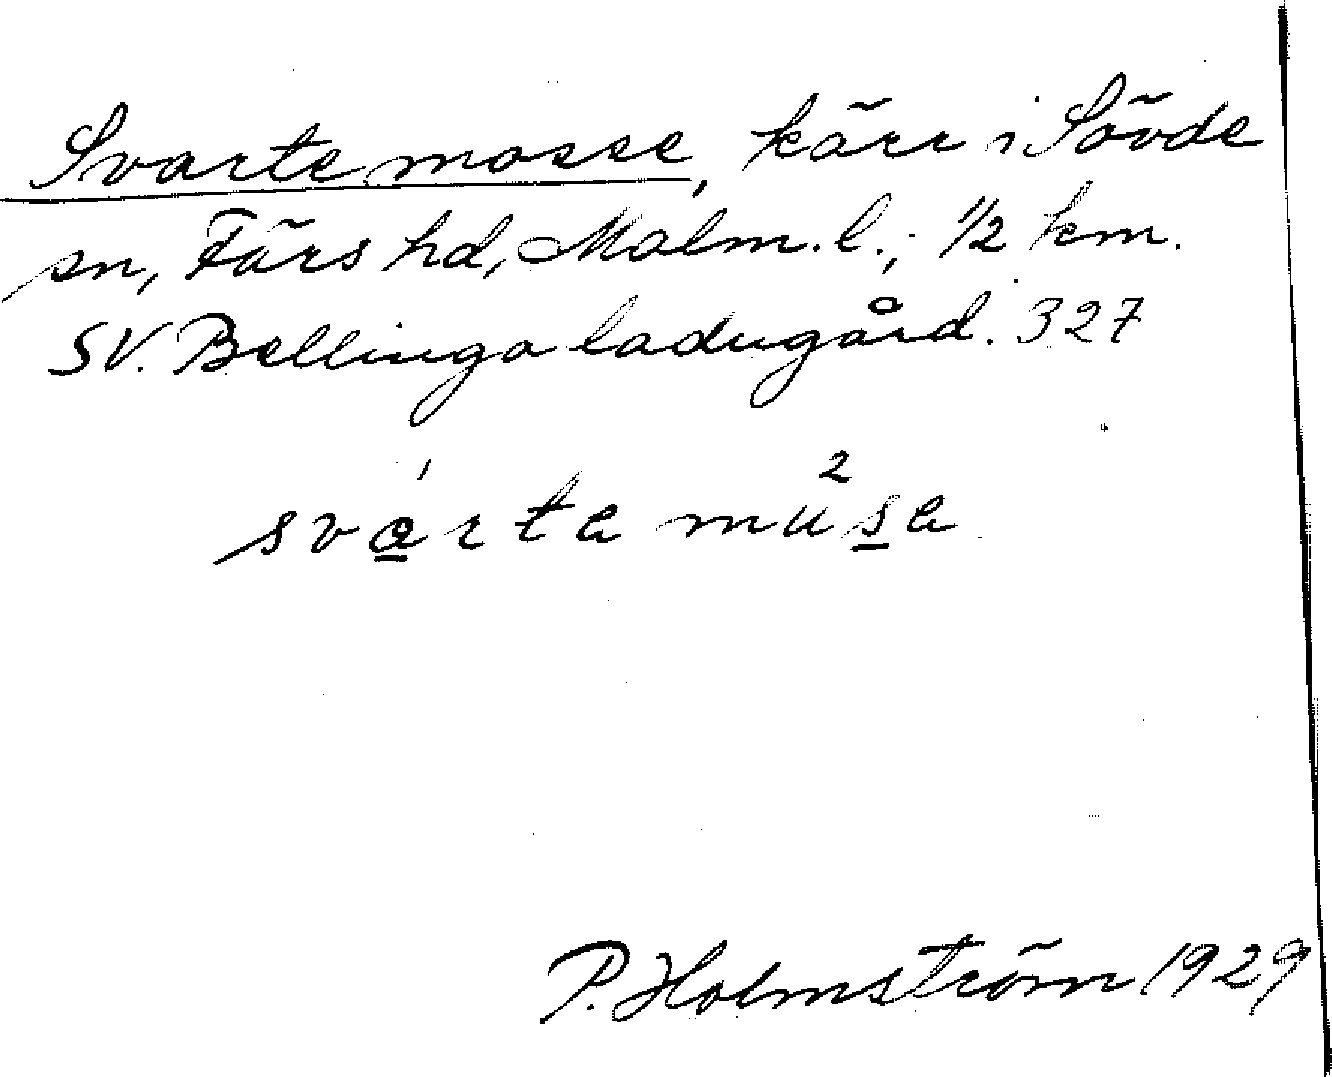 Svarte mosse, kärr i Sövde
sn, Färs hd, Malm. l.; 1/2 km.
SV. Bellinga ladugård. 327
1 2
svarta musa
P. Holmström 1929